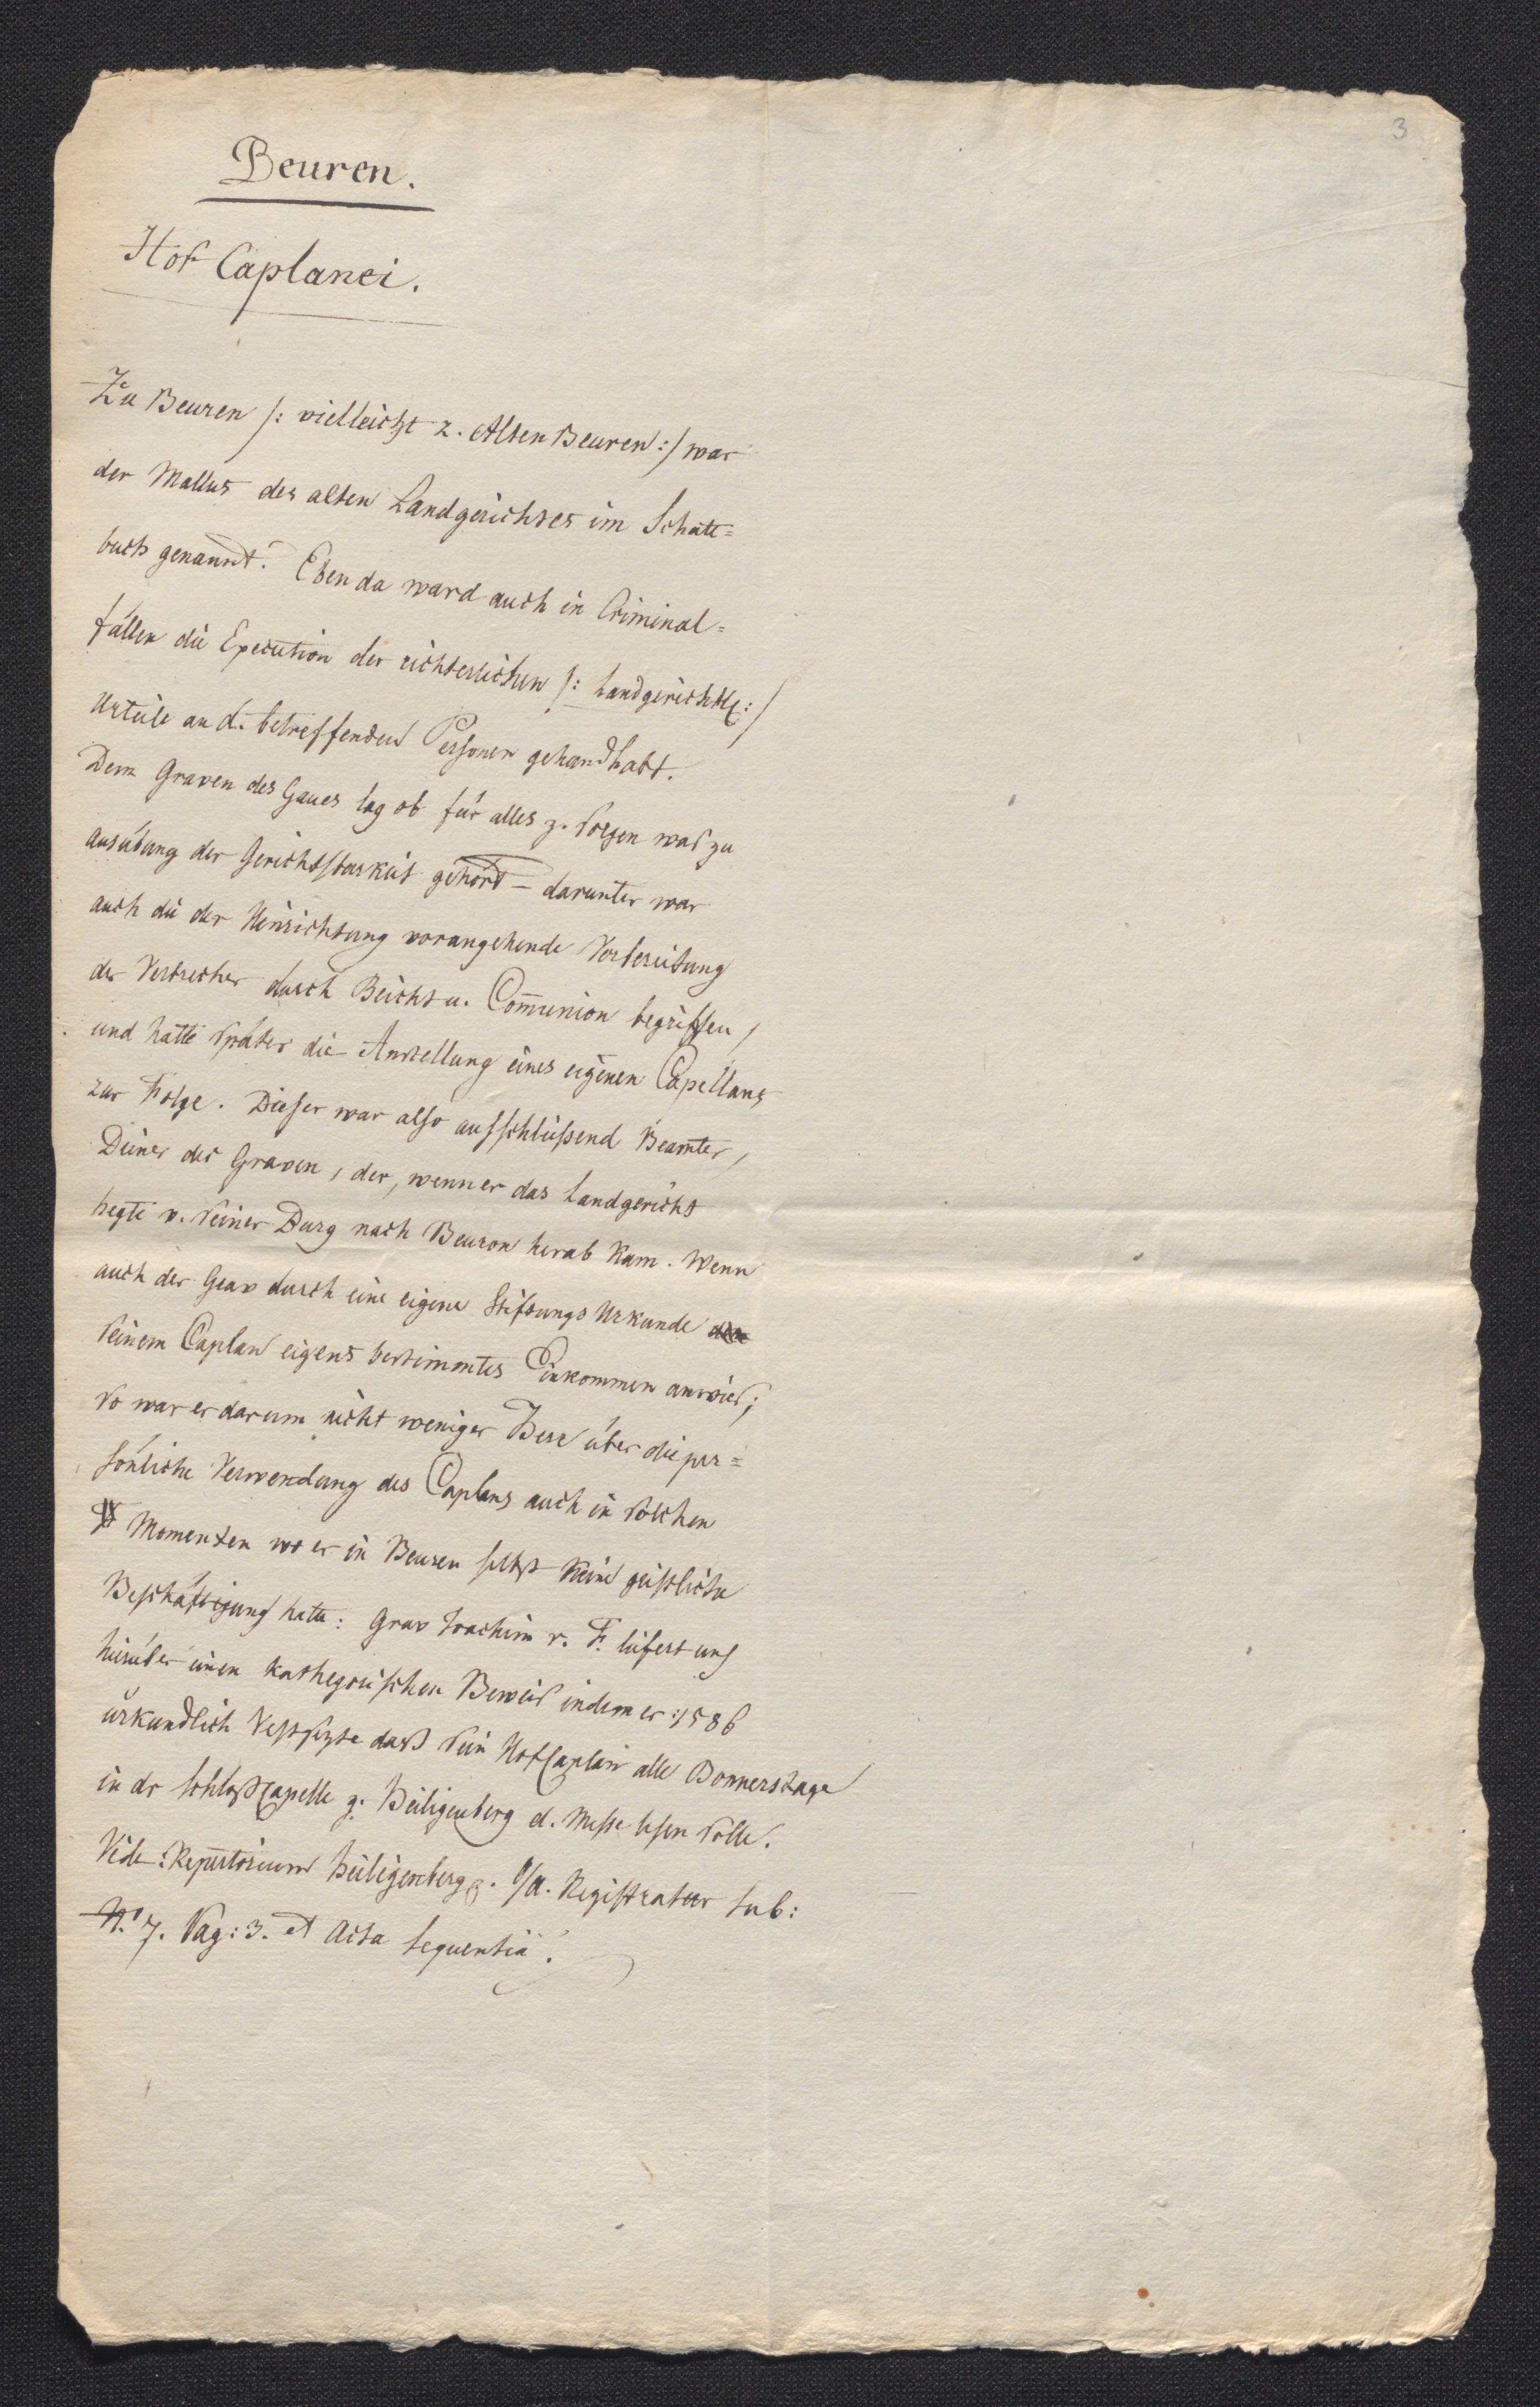 3
Beuren.
Hof Caplanei.
Zu Beuren /: vielleicht z. Alten Beuren :/ war
der Mallus des alten Landgerichtes im Schatt=
buch genannt. Eben da ward auch in Criminal=
fällen die Execution der richterlichen /: Landgerichtl: /
Urteile an d. betreffenden Personen gehandhabt.
Dem Graven des Gaues lag ob für alles z. sorgen was zu
Ausübung der Gerichtsbarkeit gehört – darunter war
auch die der Hinrichtung vorangehende Vorbereitung
der Verbrecher durch Beicht u. Communion begriffen,
und hatte später die Anstellung eines eigenen Capellans
zur Folge. Dieser war also ausschlüßend Beamter,
Diener des Graven, der, wenn er das Landgericht
hegte v. seiner Burg nach Beuron herab kam. Wenn
auch der Grav durch eine eigene Stiftungs Urkunde
seinem Caplan eigens bestimmtes Einkommen anwies;
so war er darum nicht weniger Herr über die per=
sönliche Verwendung des Caplans auch in solchen
Momenten wo er in Beuren selbst keine geistliche
Beschäftigung hatte: Grav Joachim v. F. liefert uns
hierüber einen kathegorischen Beweis indem er: 1586
urkundlich festsezte daß sein HofCaplan alle Donnerstage
in der SchloßCapelle z. Heiligenberg d. Messe lesen solle.
Vide: Repertorium Heiligenberg. O/A. Registratur sub:
N.º 7. Pag: 3. et Acta sequentia.